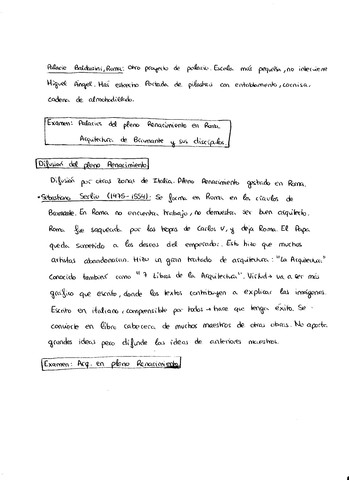 Palacio Baldassini, Roma: Otro proyecto de palacio. Escala más pequeña, no interviene
Miguel Ángel. Más estrecho Portada de pilastras con entablamento, cornisa,
cadena de almohadillado.
Examen: Palacios del pleno Renacimiento en Roma.
Arquitectura de Bramante y sus discípulos.
Difusión del pleno Renacimiento
Difusión por otras zonas de Italia. Pleno Renacimiento gestado en Roma.
• Sebastiano Serlio (1475-1554): Se forma en Roma en los círculos de
Bramante. En Roma no encuentra trabajo, no demuestra ser buen arquitecto.
Roma fue saqueada por las tropas de Carlos V, y deja Roma. El Papa
queda sometido a los deseos del emperador. Esto hizo que muchos
artistas abandonaran. Hizo un gran tratado de arquitectura: "La Arquitectura"
Conocido también como "7 Libros de la Arquitectura". Virtud → va a ser más
gráfico que escrito, donde los textos contribuyen a explicar las imágenes.
Escrito en italiano, comprensible por todos → hace que tenga éxito. Se
convierte en libro cabecera de muchos maestros de otras obras. No aporta
grandes ideas pero difunde las ideas de anteriores maestros.
Examen: Arq. en pleno Renacimiento